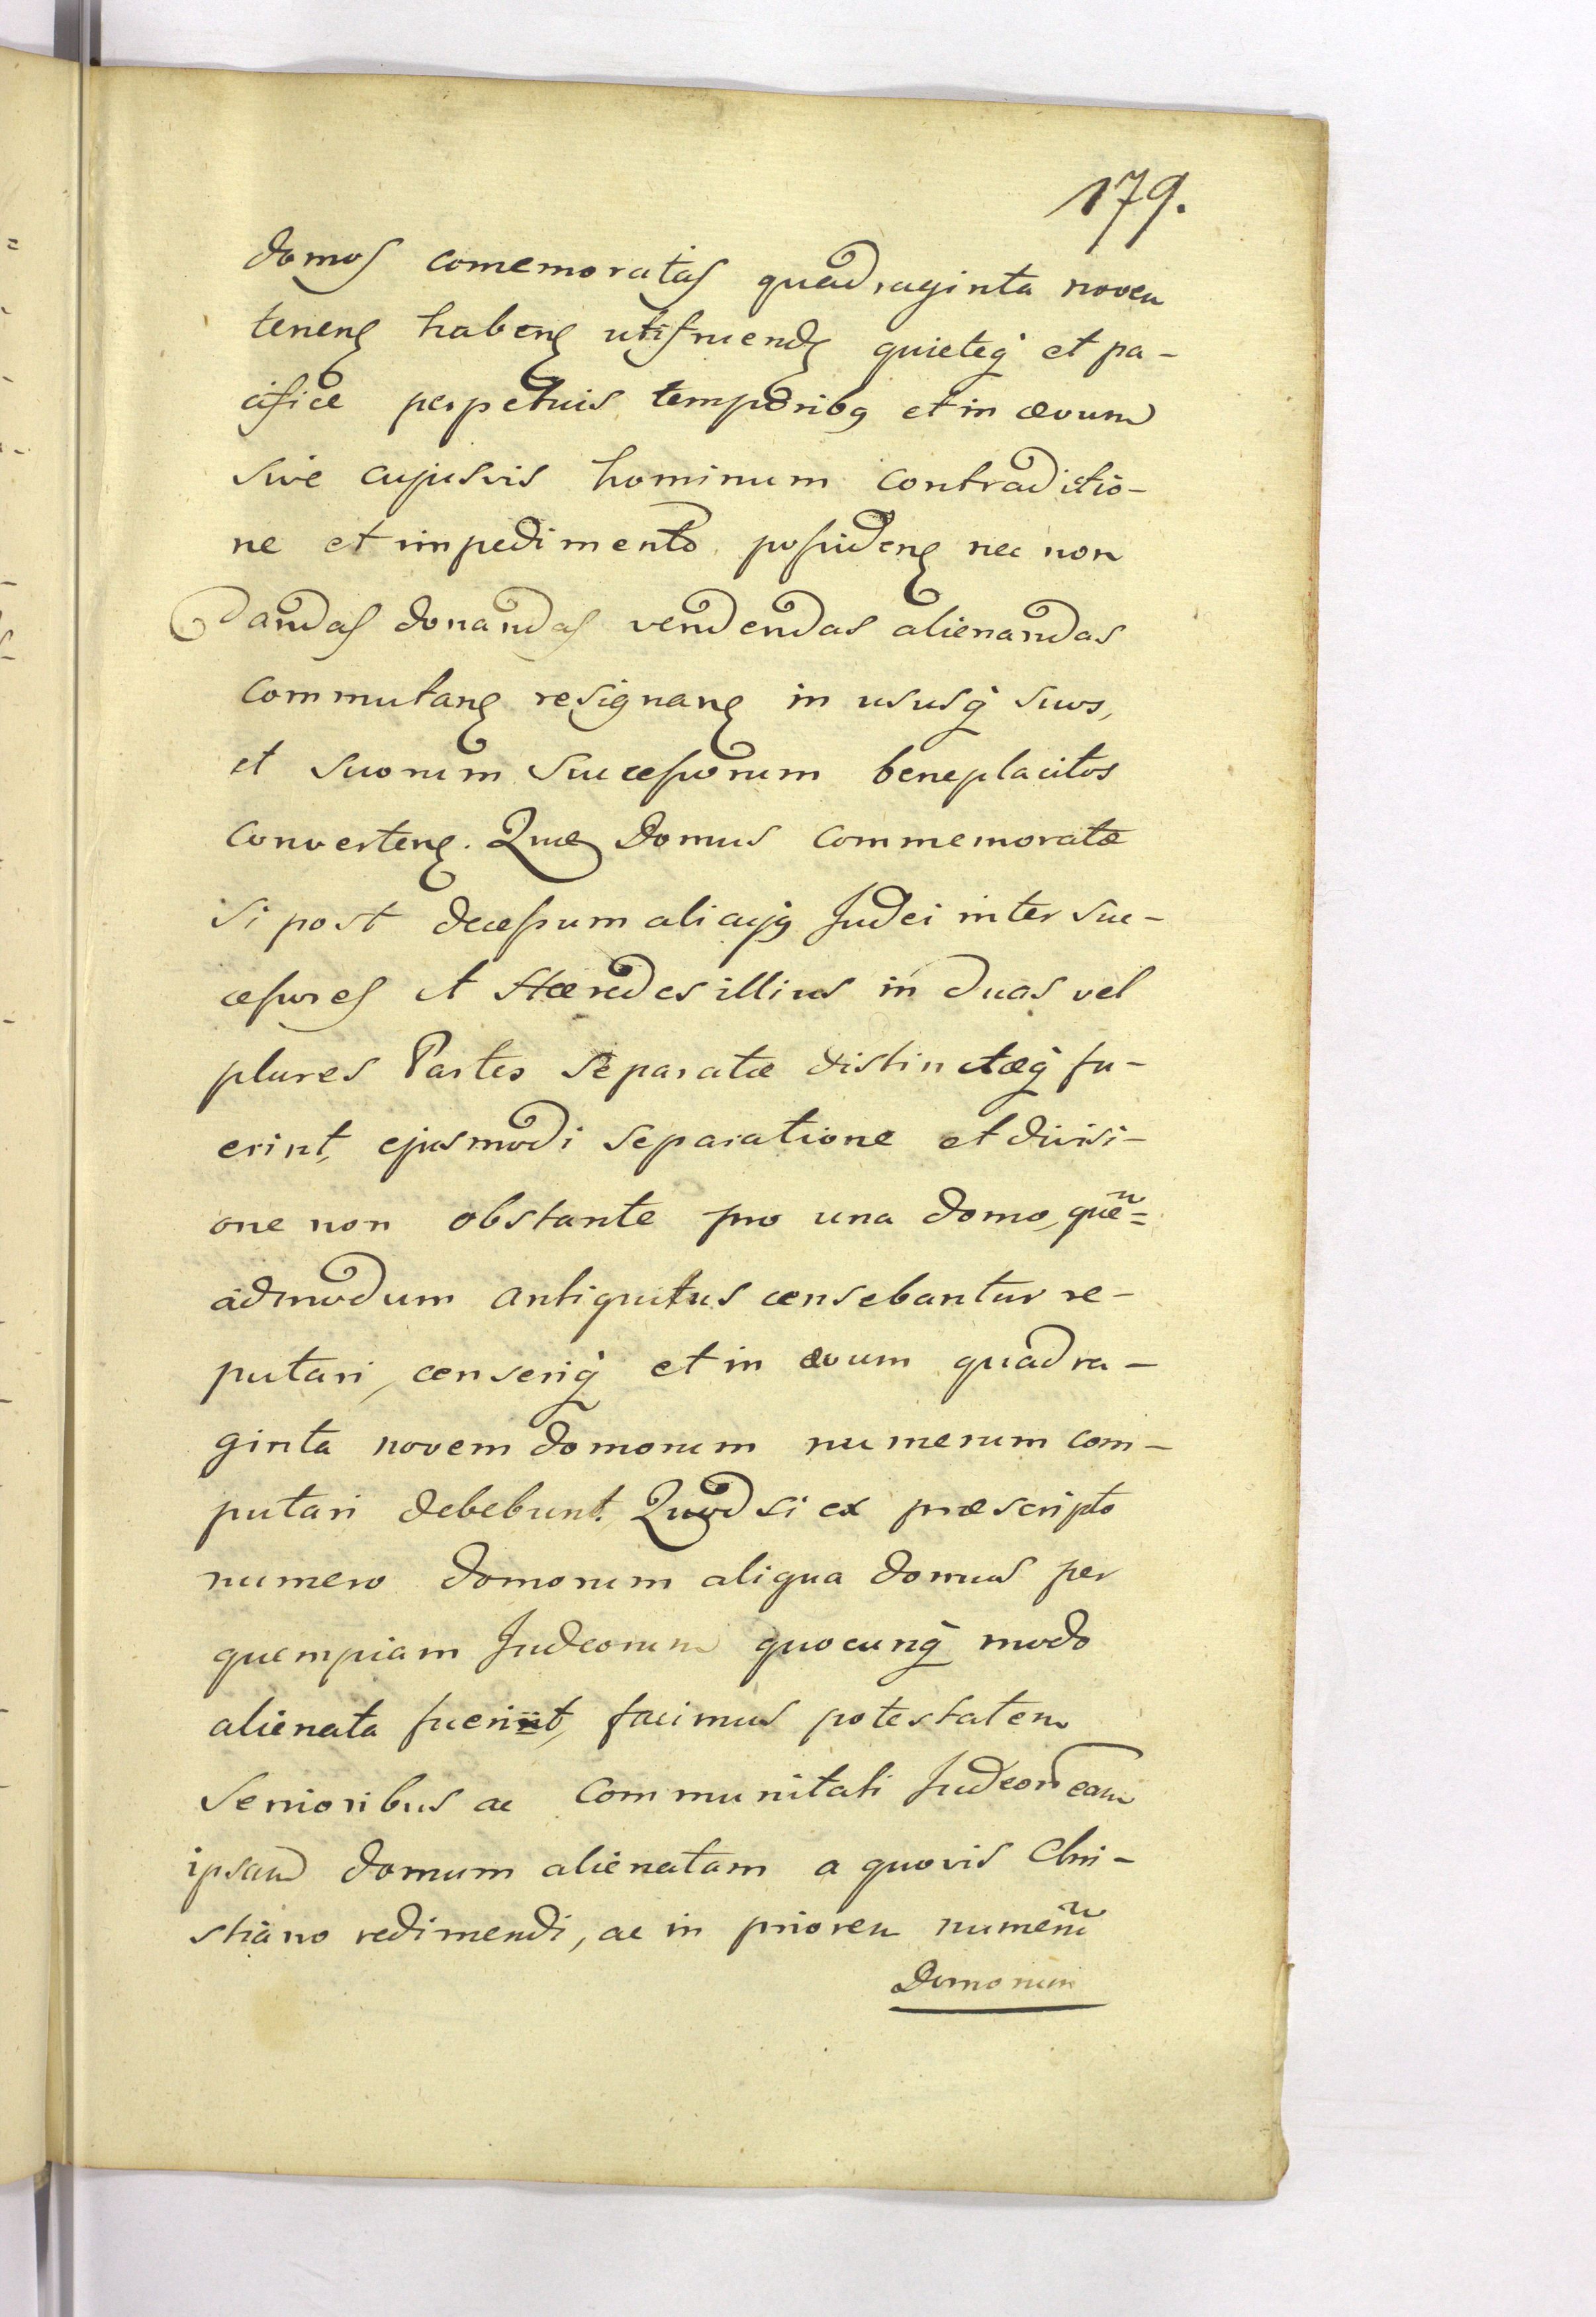 179.
domos comemoratas quadraginta novem
tenenꝭ habenꝭ utifruendꝭ quieteq́ et pa-
cifice perpetuis temporibꝰ et in ævum
sive cujusvis hominum contradictio-
ne et impedimento possidenꝭ nec non
Dandas donandas vendendas alienandas
commutanꝭ resignanꝭ in ususq́ suos,
et suorum successorum beneplacitos
convertenꝭ. Quæ Domus commemoratæ
si post decessum alicujꝰ Judei inter suc-
cessores et Hæredes illius in duas vel
plures Partes separatæ distinctæq́ fu-
erint, ejusmodi separatione et divisi-
one non obstante pro una domo, quē=
admodum antiquitus censebantur re-
putari, censeriq́ et in ævum quadra-
ginta novem domorum numerum com-
putari debebunt. Quod si ex præscripto
numero domorum aliqua domus per
quempiam Judeorum quocunq́ modo
alienata fuerint, facimus potestatem
Senioribus ac Communitati Judeor̄ eam
ipsam domum alienatam a quovis Chri-
stiano redimendi, ac in priorem numerū
Domorum